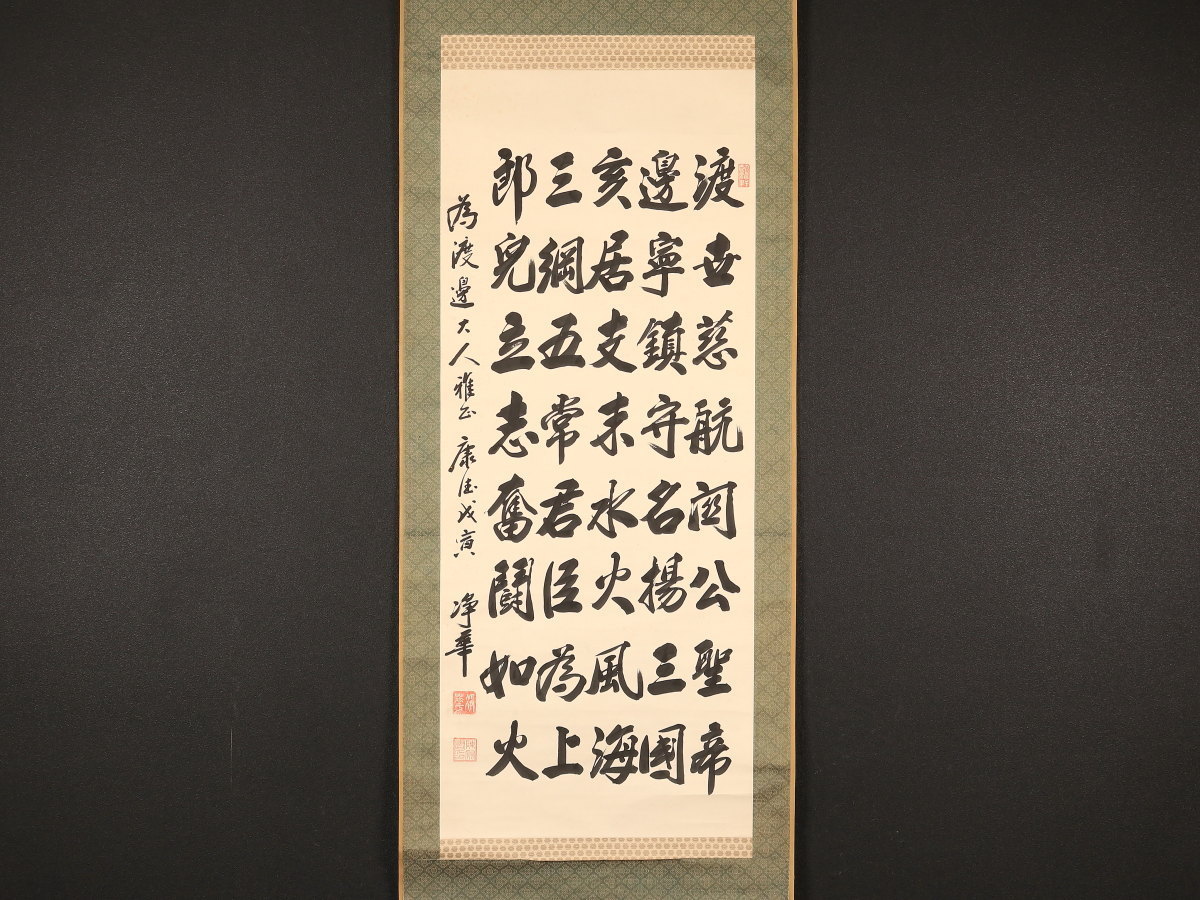 渡世慈航関公聖帝
邊寧鎮守名揚三國
亥居支末水火風海
三綱五常君臣為上
郎兒立志奮鬪如火
為渡邊大人雅正 康德戊寅 净華